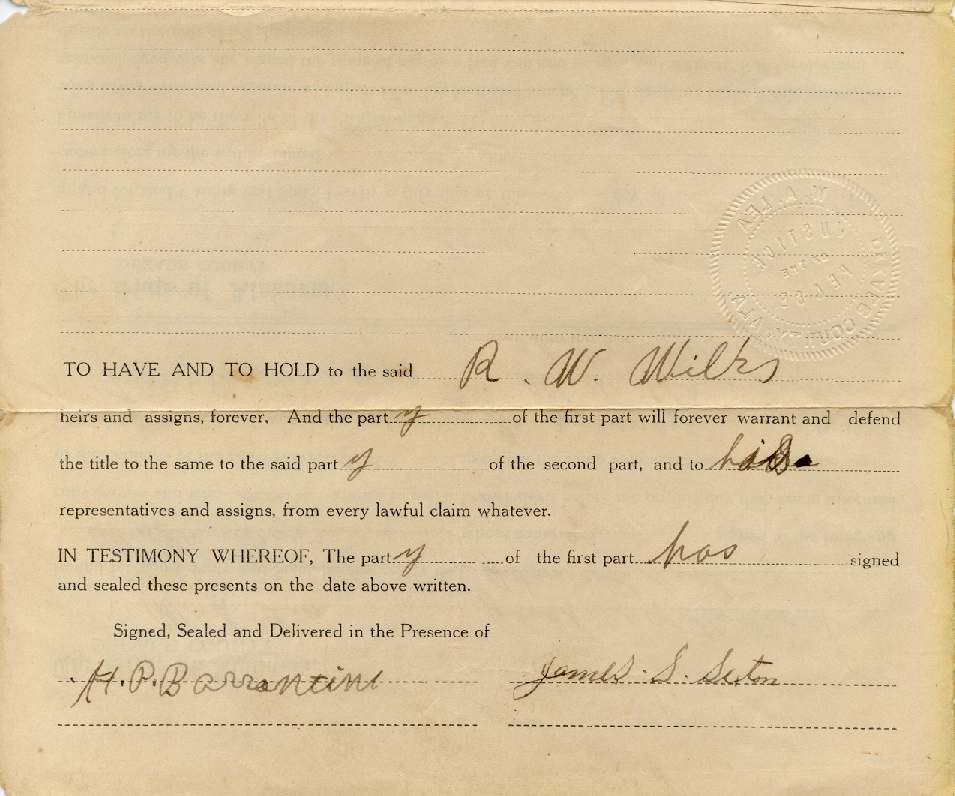 TO HAVE AND TO HOLD to the said R. W. Wilks
heirs and assigns, forever. And the party of the first part will forever warrant and defend
the title to the same to the said party of the second part, and to his
representatives and assigns, from every lawful claim whatever.
IN TESTIMONY WHEREOF, The party of the first part has signed
and sealed these presents on the date above written.
Signed, Sealed and Delivered in the Presence of
H. P. Barrantine James S. Sexton